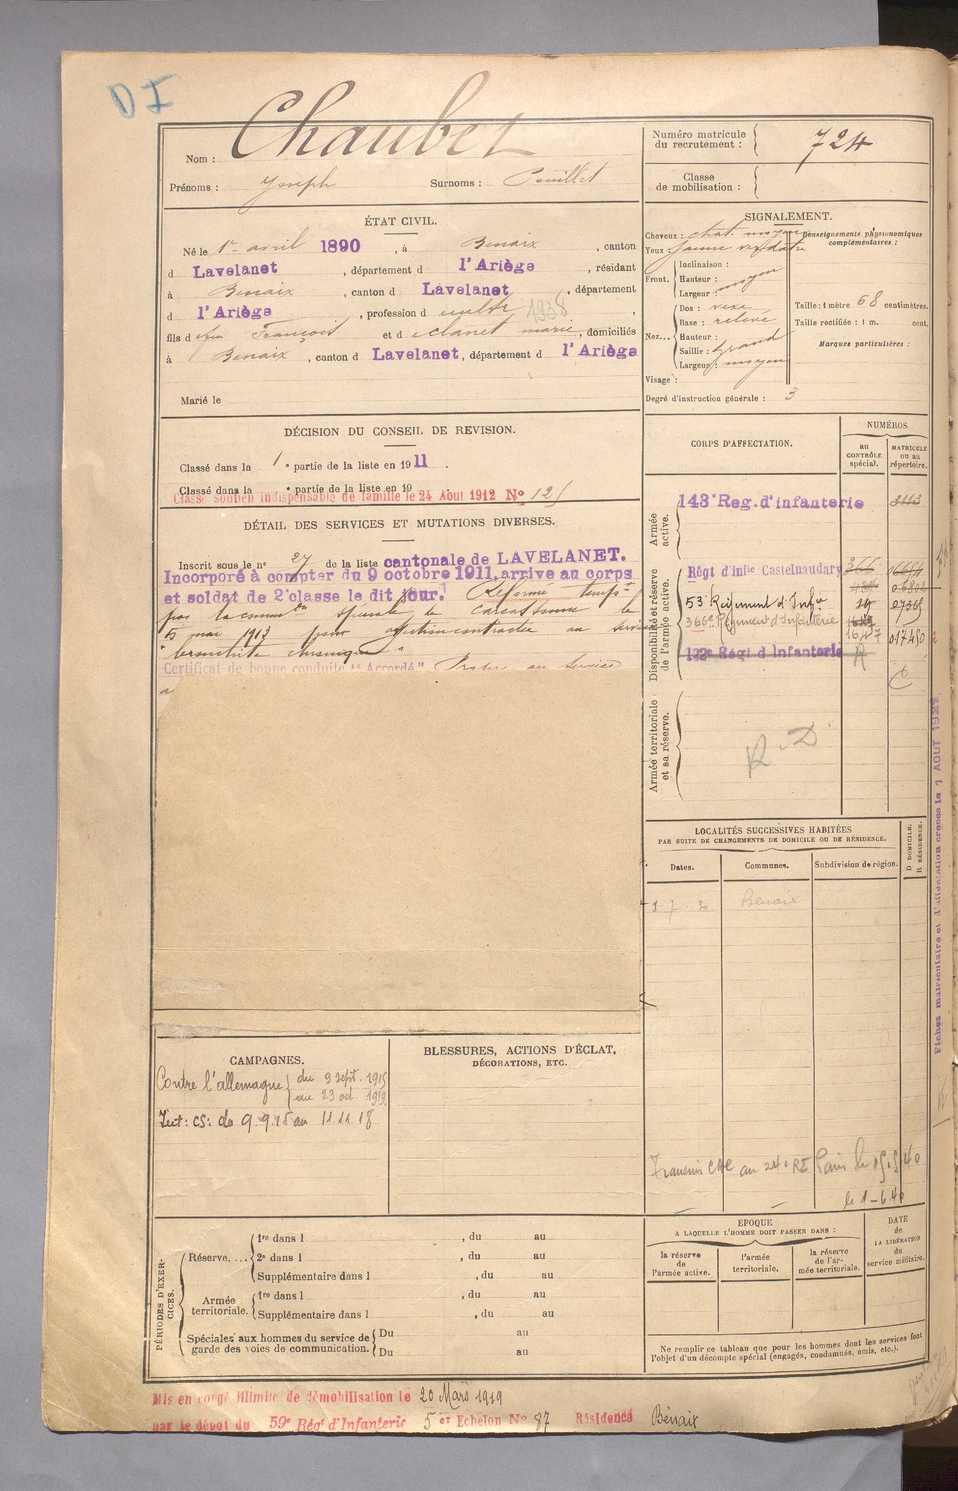 DI
Nom : Chaubet
Prénoms : Joseph Surnoms : Pouillet
Numéro matricule du recrutement : 724
Classe de mobilisation :
ÉTAT CIVIL.
Né le 1er avril 1890, à Benaix, canton
d Lavelanet, département d l'Ariège, résidant
à Benaix, canton d Lavelanet, département
d l'Ariège, profession d cultr 1938,
fils d feu François et d marie, domiciliés
à Benaix, canton d Lavelanet, département d l'Ariège
Marié le
SIGNALEMENT.
Cheveux : chat. moyen
Yeux : jaune verdâtre
Front. Inclinaison :
Hauteur : moyen
Largeur :
Nez... Dos : vexe
Base : relevé
Hauteur :
Saillie : grand
Largeur : moyen
Visage :
Degré d'instruction générale : 3
Renseignements physionomiques complémentaires :
Taille : 1 mètre 68 centimètres.
Taille rectifiée : 1 m. cent.
Marques particulières :
DÉCISION DU CONSEIL DE REVISION.
Classé dans la 1e partie de la liste en 1911.
Classé dans la e partie de la liste en 19
Classé soutien indispensable de famille le 24 Aout 1912 No
DÉTAIL DES SERVICES ET MUTATIONS DIVERSES.
Inscrit sous le n° 27 de la liste cantonale de LAVELANET.
Incorporé à compter du 9 octobre 1911, arrive au corps
et soldat de 2e classe le dit jour. Réformé tempre
par la common spéciale de Carcassonne le
5 mai 1913 pour affection contractée au service
"bronchite chronique"
Certificat de bonne conduite "Accordé" au service
CORPS D'AFFECTATION.
NUMÉROS
au CONTRÔLE spécial.
MATRICULE ou au répertoire.
Armée active.
143e Reg. d'infanterie 3113
Disponibilité et réserve de l'armée active.
Régt d'infie Castelnaudary 366
53e Régiment d'Infie 07365
366e Régiment d'Infanterie
1647 017480
122e Régt d'Infanterie R
Armée territoriale et sa réserve.
R.D
LOCALITÉS SUCCESSIVES HABITÉES
PAR SUITE DE CHANGEMENTS DE DOMICILE OU DE RÉSIDENCE.
Dates. Communes. Subdivision de région. D DOMICILE. R RÉSIDENCE.
Benaix
Fiches matriculaire et d'affectation créées le 1 AOUT 1927
CAMPAGNES.
Contre l'allemagne du 9 sept. 1915
au 23 oct 1919
Int : CS : du 9.9.15 au 11.11.18
BLESSURES, ACTIONS D'ÉCLAT,
DÉCORATIONS, ETC.
le 1-6.40
PÉRIODES D'EXERCICES.
Réserve.... 1re dans l , du au
2e dans l , du au
Supplémentaire dans l , du au
Armée territoriale. 1re dans l , du au
Supplémentaire dans l , du au
Spéciales aux hommes du service de garde des voies de communication. Du au
Du au
EPOQUE
A LAQUELLE L'HOMME DOIT PASSER DANS :
la réserve de l'armée active.
l'armée territoriale.
la réserve de l'armée territoriale.
DATE de LA LIBÉRATION du service militaire.
Ne remplir ce tableau que pour les hommes dont les services font
l'objet d'un décompte spécial (engagés, condamnés, omis, etc.).
Mis en congé illimité de démobilisation le 20 Mars 1919
par le dépôt du 59e Régt d'Infanterie 5e Echelon No 87 Résidence Bénaix